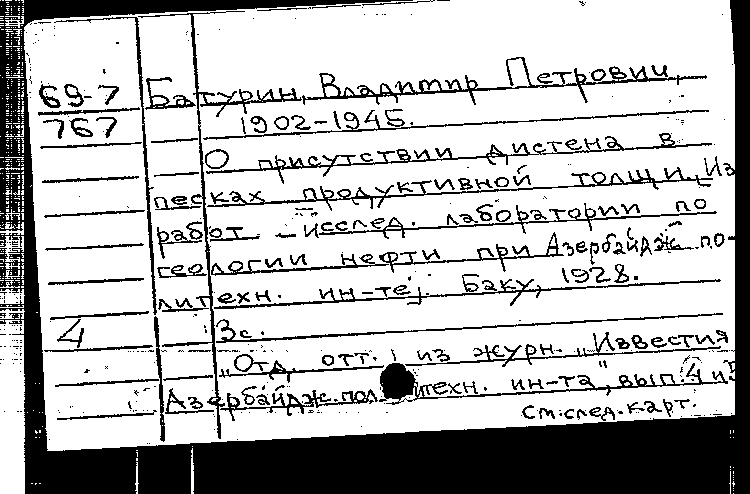 69-7 Батурин, Владимир Петрович,
767 1902-1945.
О присутствии дистена в
песках продуктивной толщи. Из
работ исслед. лаборатории по
геологии нефти при Азербайдж. по-
литехн. ин-те. Баку, 1928.
4 3с.
„Отд. отт. из журн. „Известия
Азербайдж. политехн. ин-та", вып. 4
см. след. карт.